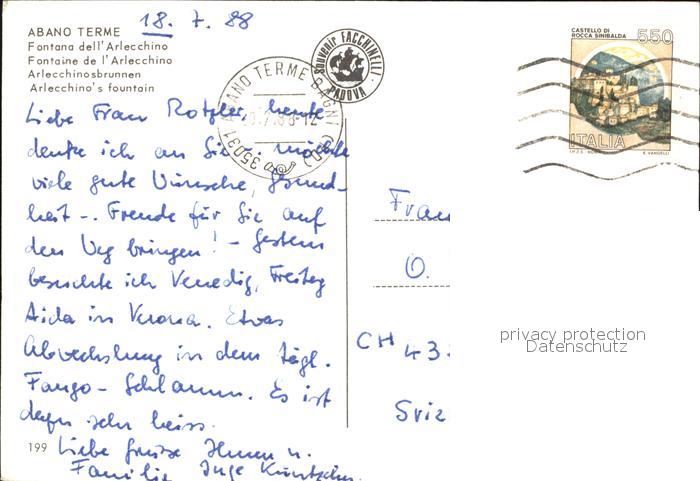 18. 7. 88
ABANO TERME
Fontana dell'Arlecchino
Fontaine de l'Arlecchino
Arlecchinosbrunnen
Arlecchino's fountain
Souvenir FACCHINELLI · PADOVA ·
ABANO TERME BAGNI (PD) 35031
CASTELLO DI
ROCCA SINIBALDA
550
ITALIA
I.P.Z.S. ROMA E. VANGELLI
Liebe Frau Rotzler, heute
denke ich an Sie u. möchte
viele gute Wünsche Gesund-
heit -. Freude für Sie auf
den Weg bringen! - Gestern
besuchte ich Venedig, Freitag
Aida in Verona. Etwas
Abwechslung in dem tägl.
Fango-Schlamm. Es ist
sehr heiss.
Liebe Grüsse Ihnen u.
Familie Inge
Frau
O.
CH 43
Sviz
privacy protection
Datenschutz
199